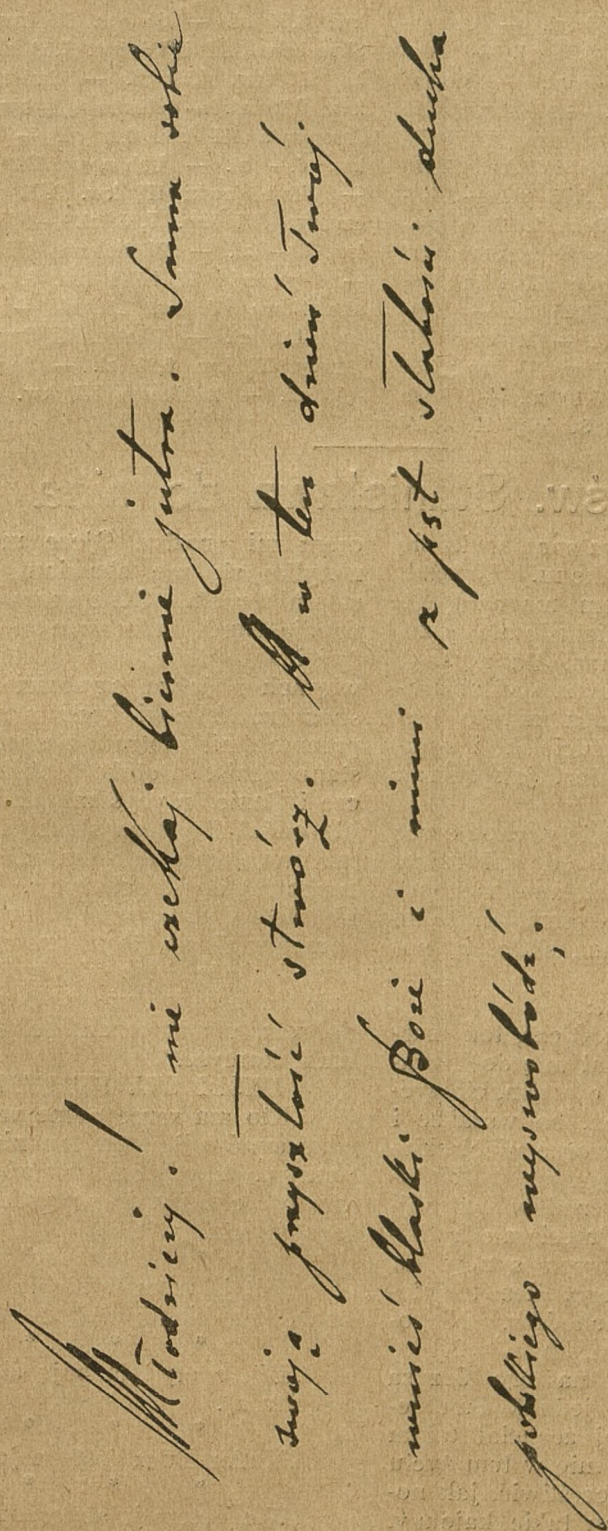 Młodzieży! nie czekaj biernie jutra. Sama sobie
swoją przyszłość stwórz. A w ten dzień Twój
wnieś blaski Boże i nimi z pęt słabości ducha
polskiego wyswobódź!